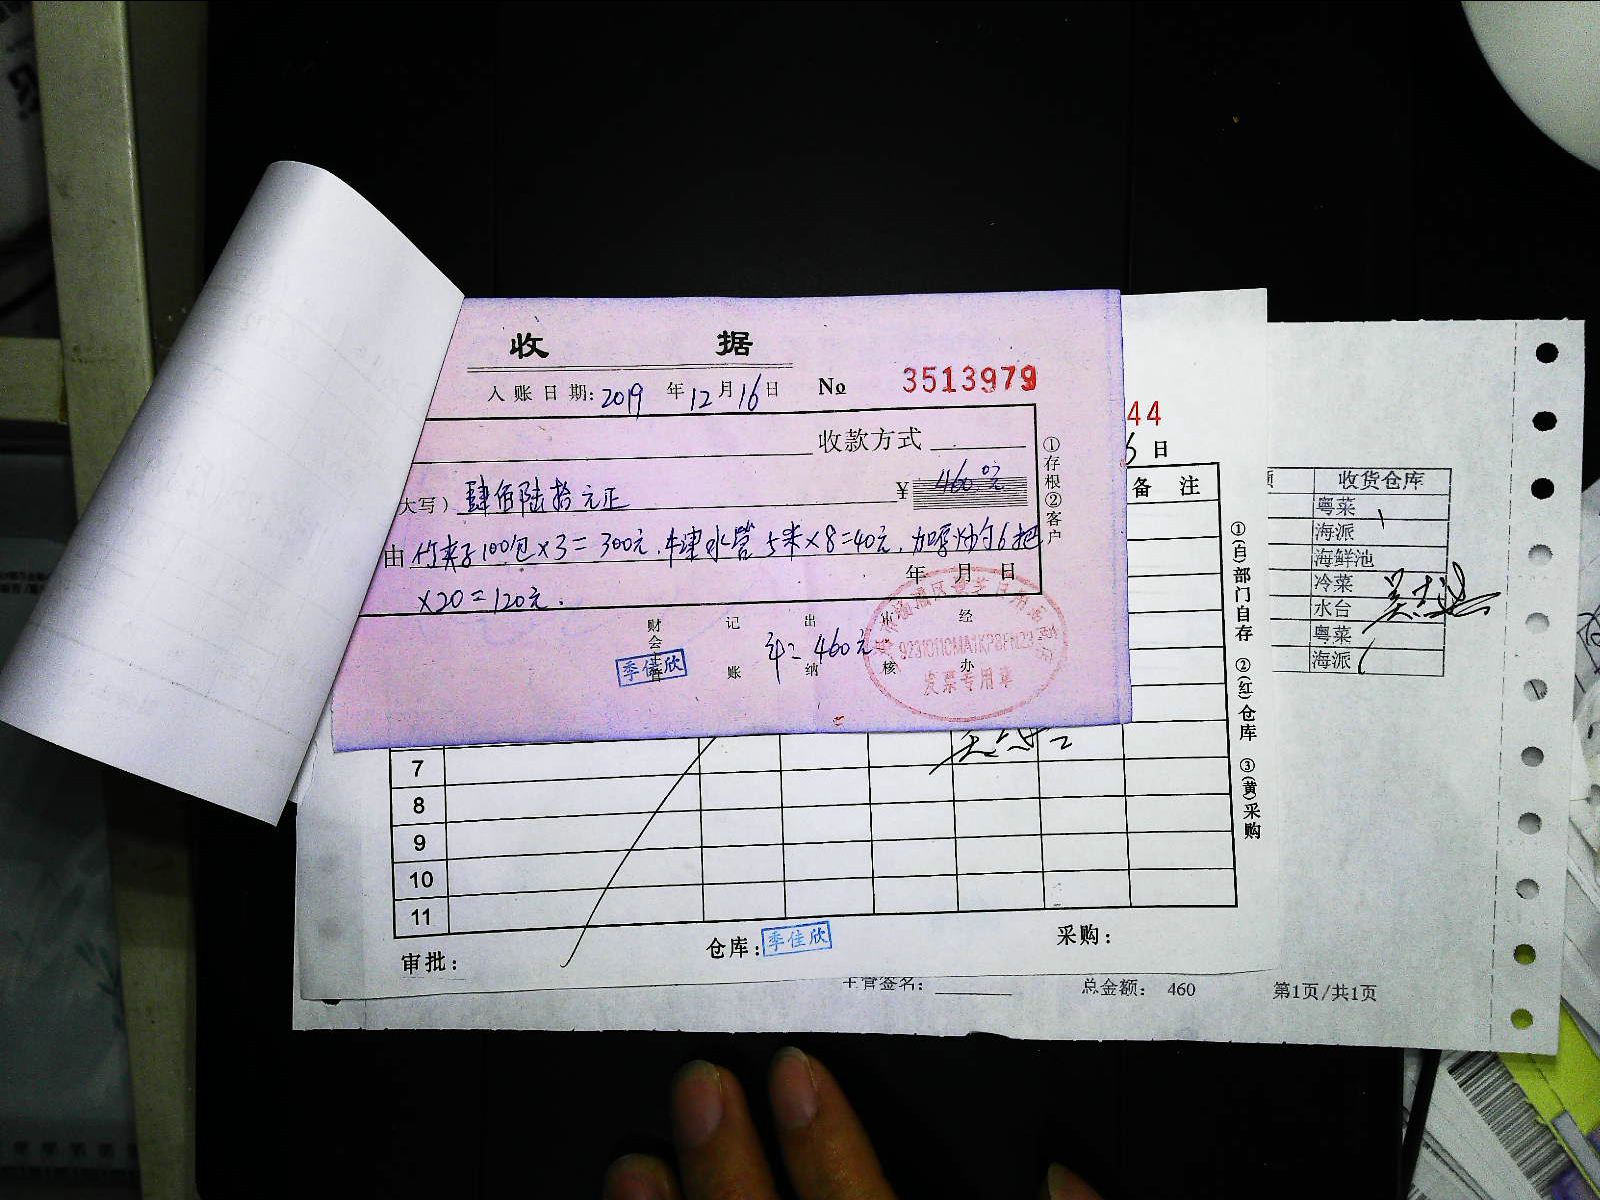 收 据
入账日期: 2019 年 12 月 16 日 No 3513979
收款方式
大写) 肆佰陆拾元正 ¥ 460元
由 竹夹子100包×3=300元. 牛津水管 5米×8=40元, 加厚炒勺6把
×20=120元.
年 月 日
财会主管 记账 出纳 审核 经办
斗=460元
季佳欣
92310110MA1KP8FN23
发票专用章
①存根②客户
44
6 日
备 注
7
8
9
10
11
审批: 仓库: 季佳欣 采购:
①(白)部门自存 ②(红)仓库 ③(黄)采购
收货仓库
粤菜
海派
海鲜池
冷菜
水台
粤菜
海派
主管签名: 总金额: 460 第1页/共1页